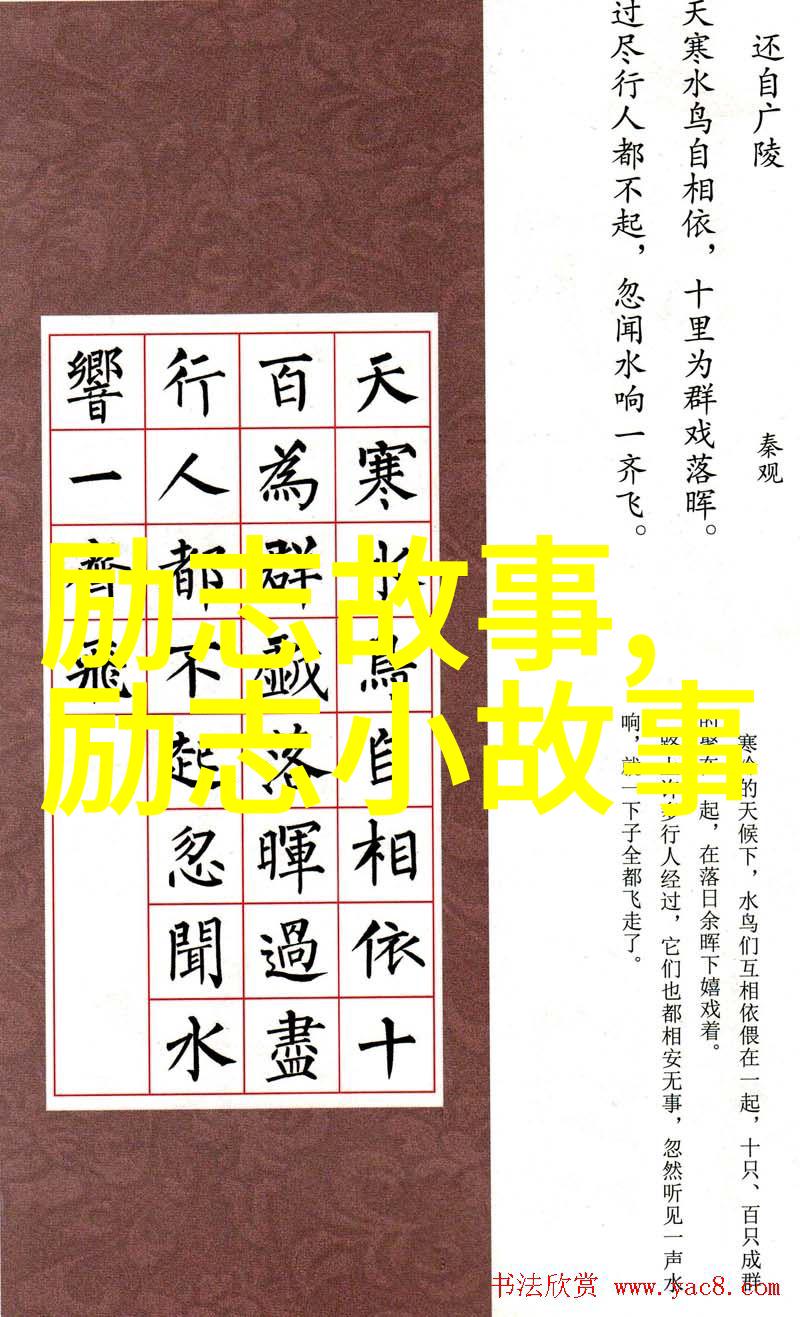 还自广陵
秦观
天寒水鸟自相依，十里为群戏落晖。
过尽行人都不起，忽闻水响一齐飞。
天寒水鳥自相依十
百為群戲落暉過盡
行人都不起忽聞水
響一齊飛
励志故事,
励志小故事
寒冷的天候下，水鸟们互相依偎在一起，十只、百只成群
的聚在一起，在落日余晖下嬉戏着。
路上许多行人经过，它们也都相安无事，忽然听见一声水
响，就一下子全都飞走了。
书法欣赏 www.yac8.com